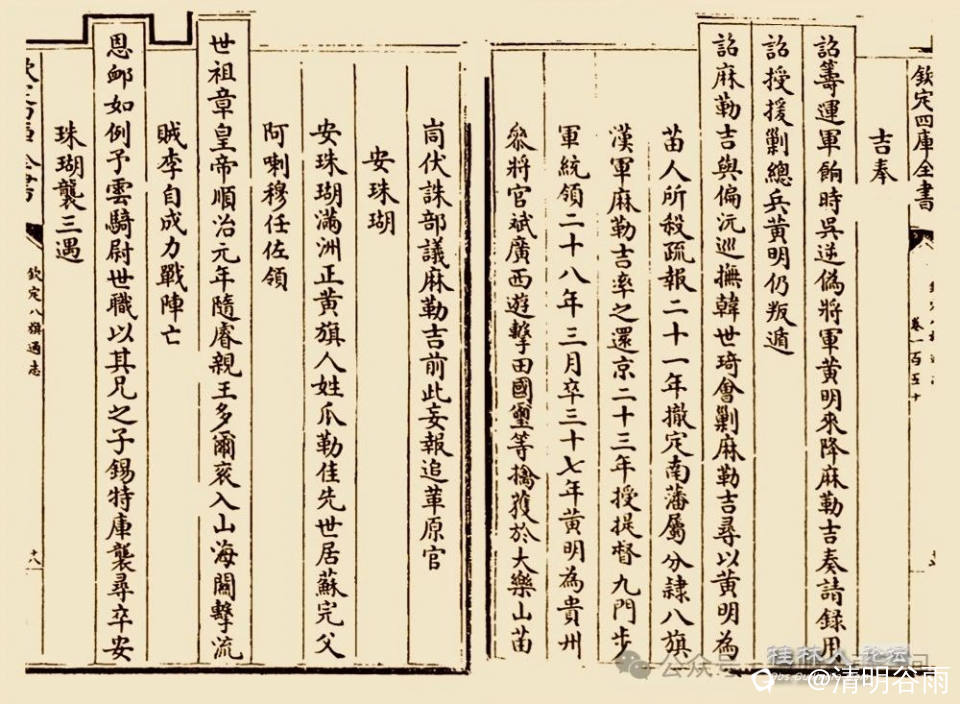 欽定四庫全書
卷一百五十
吉奉
詔籌運軍餉時吳逆僞將軍黃明來降麻勒吉奏請錄用
詔授援剿總兵黃明仍叛遁
詔麻勒吉與偏沅巡撫韓世琦會剿麻勒吉尋以黃明為
苗人所殺疏報二十一年撤定南藩屬分隸八旗
漢軍麻勒吉率之還京二十三年授提督九門步
軍統領二十八年三月卒三十七年黃明為貴州
叅將官斌廣西遊擊田國璽等擒獲於大樂山苗
峝伏誅部議麻勒吉前此妄報追革原官
安珠瑚
安珠瑚滿洲正黃旗人姓爪勒佳先世居蘇完父
阿喇穆任佐領
世祖章皇帝順治元年隨睿親王多爾衮入山海關擊流
賊李自成力戰陣亡
恩卹如例予雲騎尉世職以其兄之子錫特庫襲尋卒安
珠瑚襲三遇
欽定八旗通志
十八
公众号
桂林人论坛
@清明谷雨